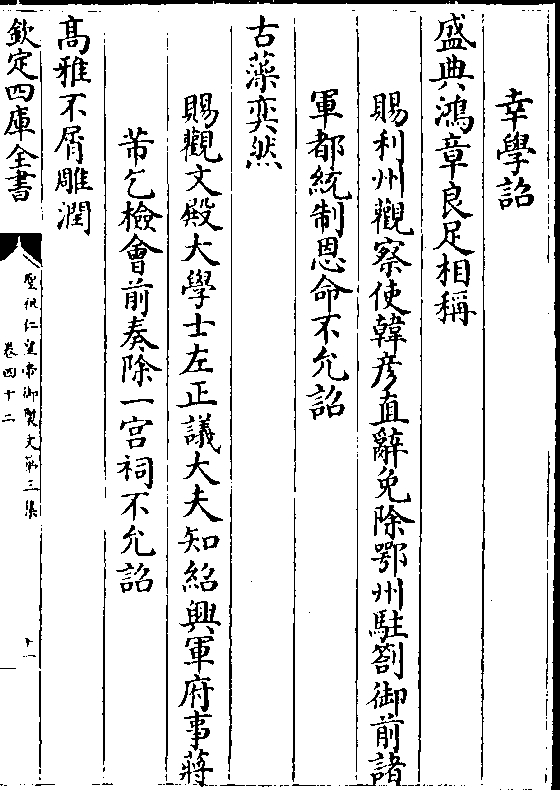 幸學詔
盛典鴻章良足相稱
賜利州觀察使韓彦直辭免除鄂州駐劄御前諸
軍都統制恩命不允詔
古藻奕然
賜觀文殿大學士左正議大夫知紹興軍府事蔣
芾乞檢會前奏除一宫祠不允詔
髙雅不屑雕潤
欽定四庫全書
聖祖仁皇帝御製文第三集
卷四十二
十一